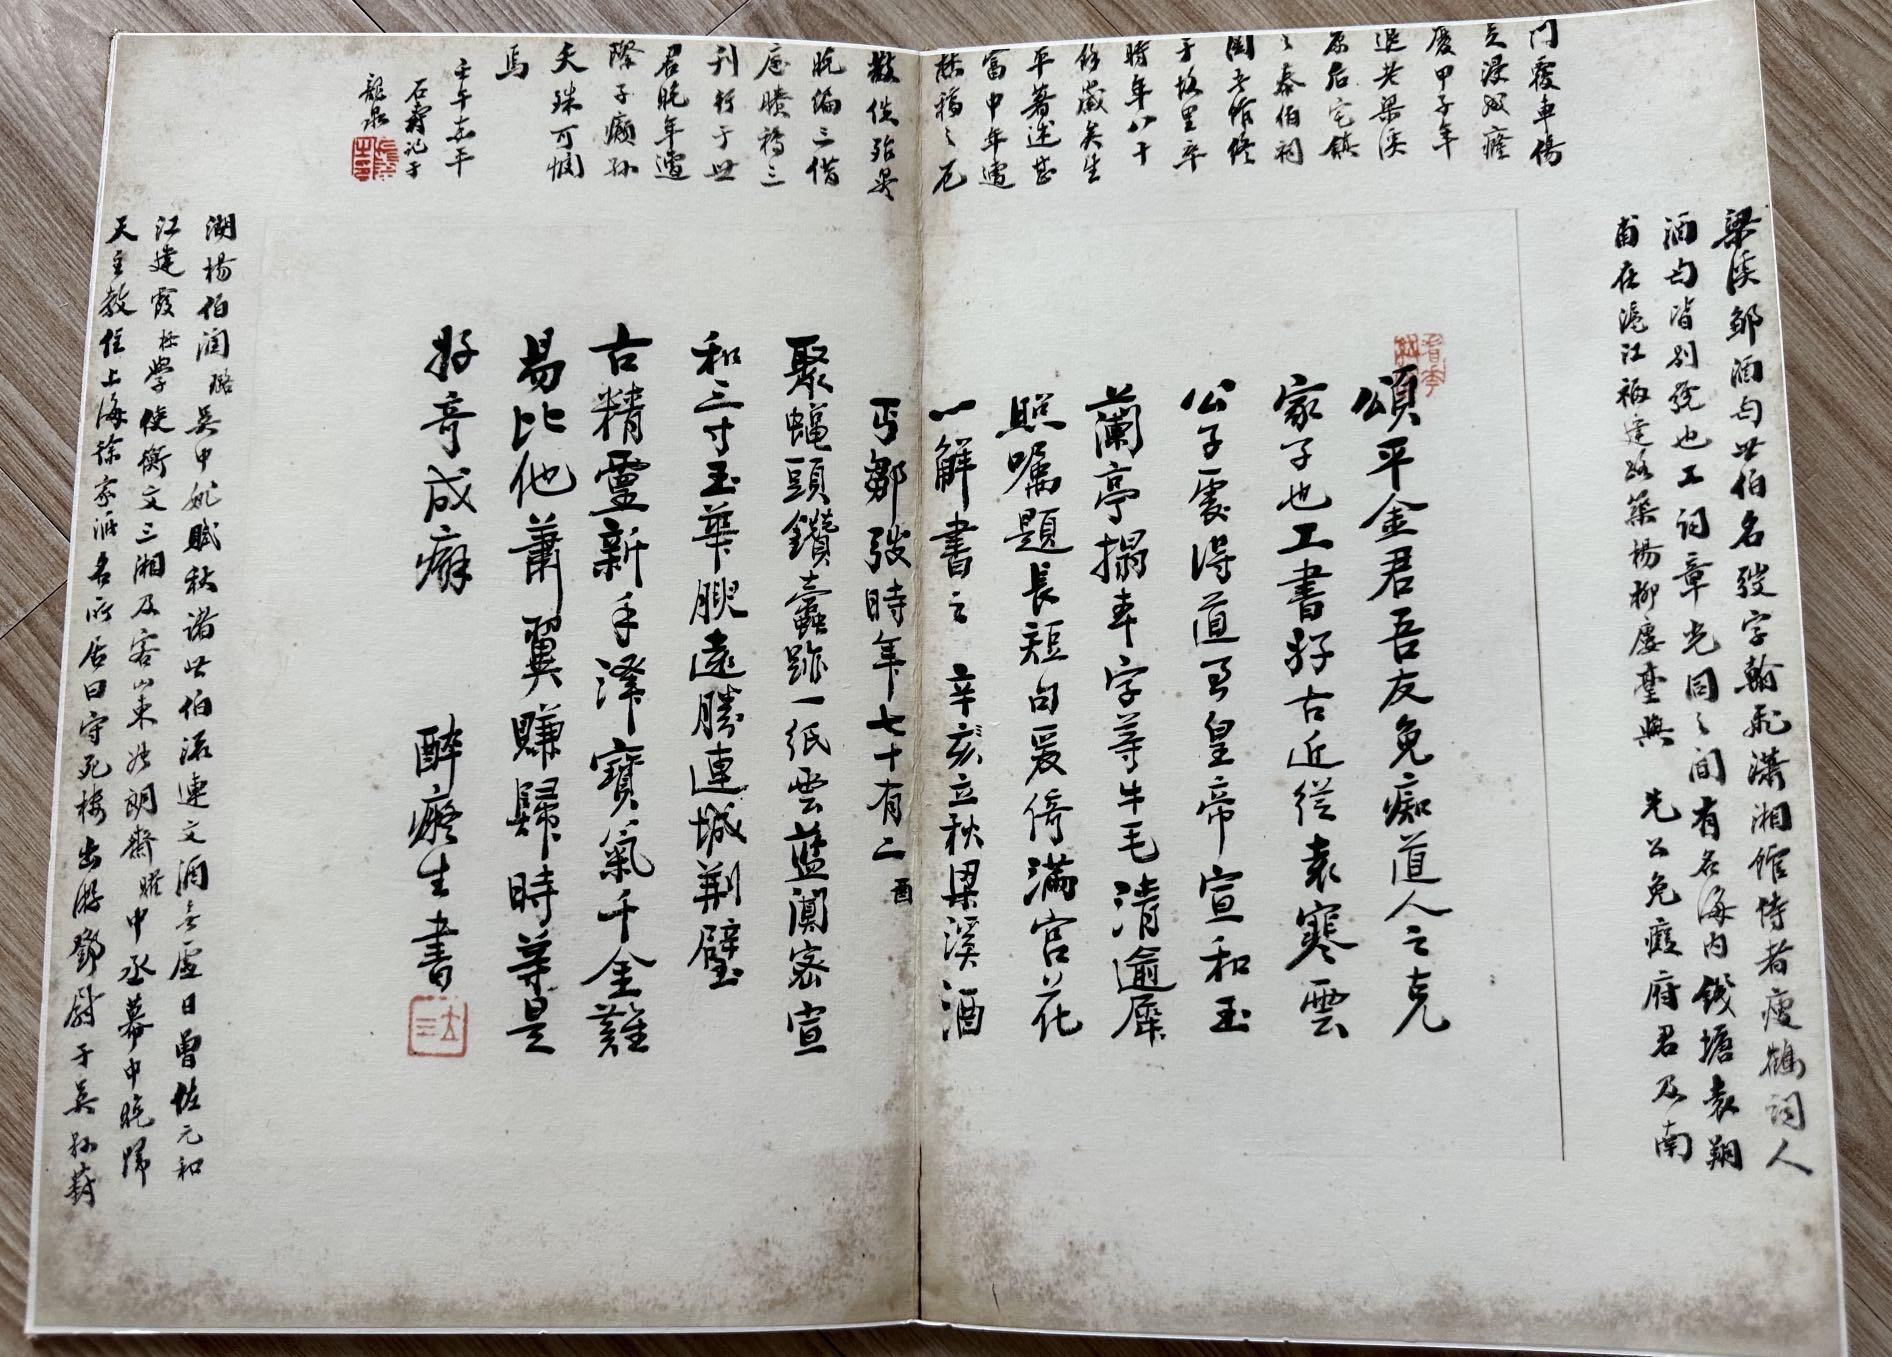 頌平金君吾友免痴道人之克
家子也工書好古近從袁寒雲
公子處得道君皇帝宣和玉
蘭亭搨本字等牛毛清逾犀
照囑題長短句爰倚滿宮花
一解書之 辛亥立秋梁溪酒
丐鄒弢時年七十有二
聚蠅頭鑽蠹跡一紙雲藍闃密宣
和三寸玉華腴遠勝連城荆璧
古精靈新手澤寶氣千金難
易比他蕭翼賺歸時等是
好奇成癖 醉癡生書
梁溪鄒酒丐世伯名弢字翰飛瀟湘館侍者瘦鶴詞人
酒丐皆別號也工詞章光同之間有名海内錢塘袁翔
甫在滬江福建路築楊柳廔臺與 先公免癡府君及南
湖楊伯潤璐吳中姚賦秋諸世伯流連文酒無虛日曾佐元和
江建霞标學使衡文三湘及客山東 朗齋曜中丞幕中晚歸
天主教住上海徐家 名所居曰守死樓出游鄧尉于吳
門覆車傷
足浸成癃
廢甲子年
退老梁溪
原后宅鎮
之泰伯祠
閏老 終
于故里卒
時年八十
餘歲矣生
平著述甚
富中年遭
散佚殆
晚論三借
廬賸稿三
刊行于世
君晚年遭
際子癲孫
夭殊可憫
焉
壬午 平
石壽記于
龍泉